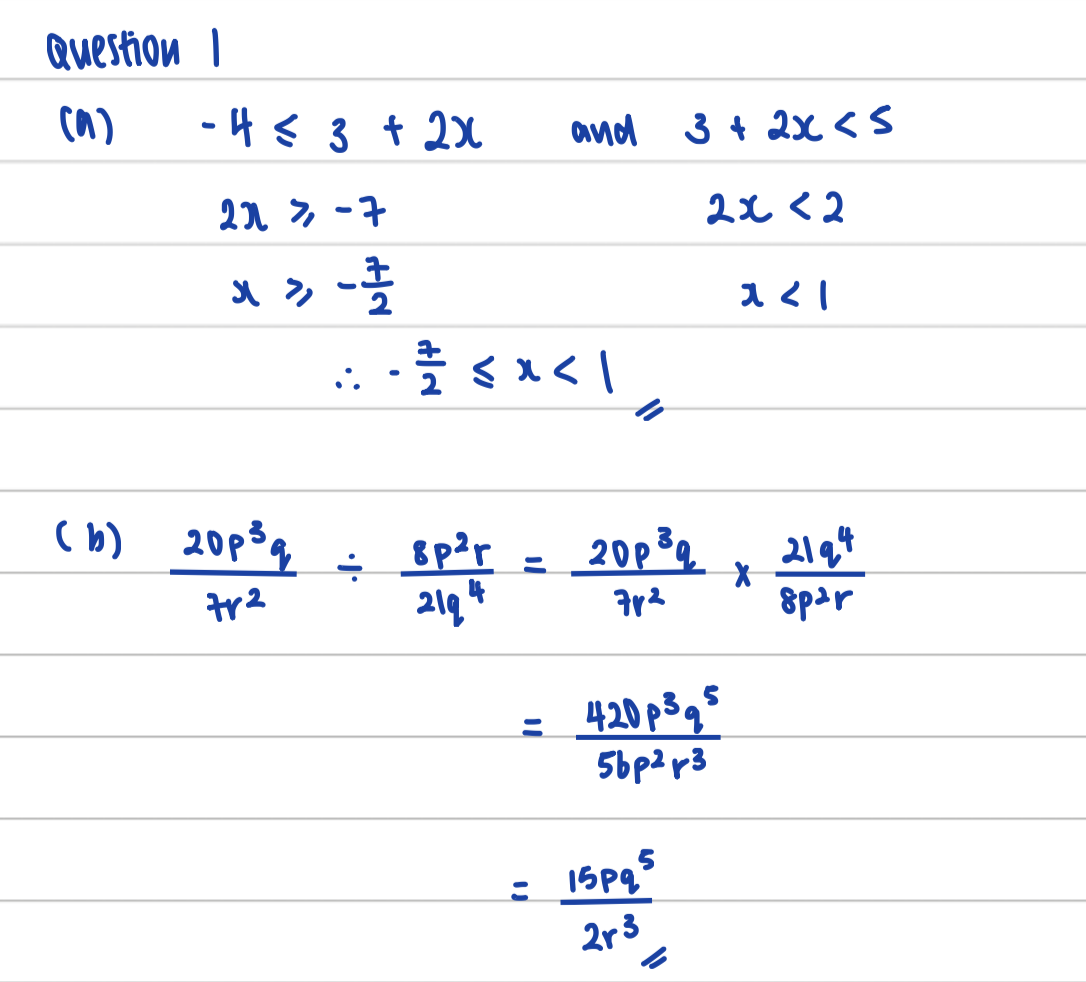 Question 1
(a) -4 ≤ 3 + 2x and 3 + 2x < 5
2x ≥ -7 2x < 2
x ≥ -7/2 x < 1
∴ -7/2 ≤ x < 1
(b) 20p³q/7r² ÷ 8p²r/21q⁴ = 20p³q/7r² × 21q⁴/8p²r
= 420p³q⁵/56p²r³
= 15pq⁵/2r³